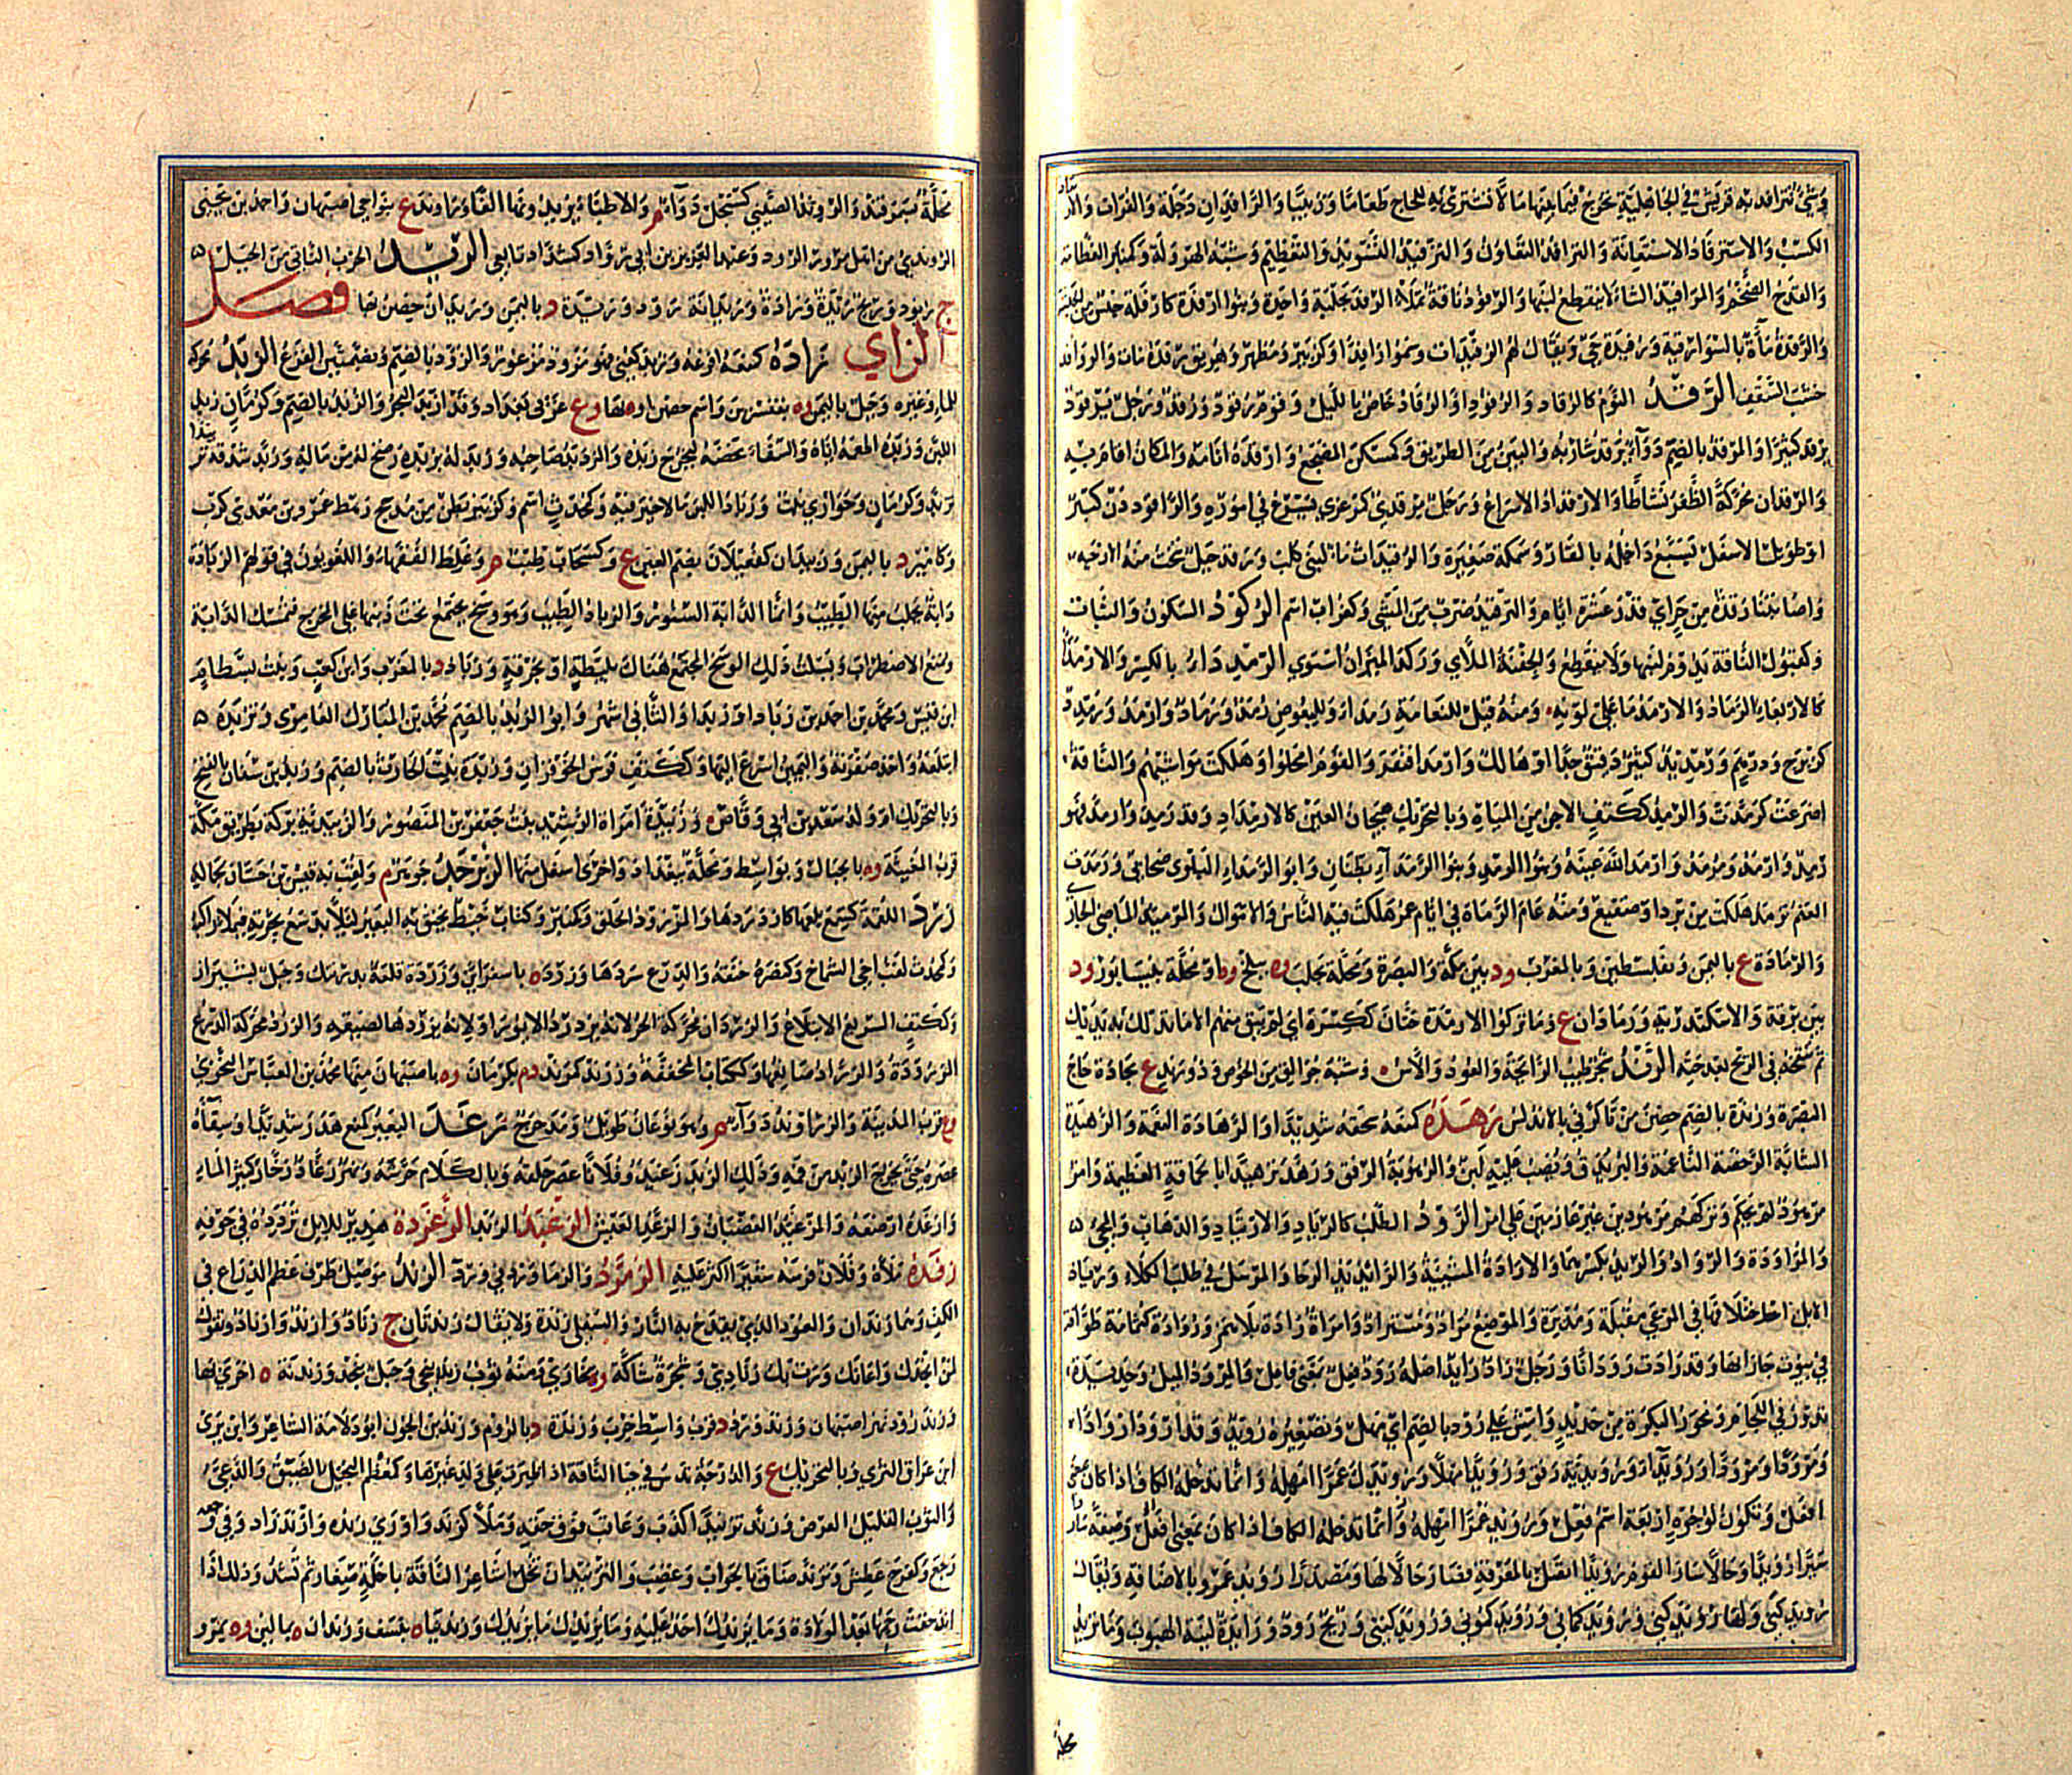 وشئ تترافد به قريش في الجاهلية تخرج فيما بينها مالا تشتري به للحاج طعاما وزبيبا والرافدان دجلة والفرات والارتفاد
الكسب والاسترفاد الاستعانة والترافد التعاون والترفيد التسويد والتعظيم وشبه الهرولة وكمنبر العظامة
والقدح الضخم والمرافيد الشاء لا ينقطع لبنها والرفود ناقة تملأ الرفد بحلبة واحدة وبنو ارفدة كارفلة جنس من الحبشة
والرفدة ماءة بالسوارقية ورفيدة حي ويقال لهم الرفيدات وسموا رافدا وكزبير ومظهر وهريق رفده مات والروافد
خشب السقف الرقد النوم كالرقاد والرقود او الرقاد خاص بالليل وقوم رقود ورقد ورجل يرقود
يرقد كثيرا والمرقد بالضم دواء يرقد شاربه والبين من الطريق وكمسكن المضجع وارقده انامه والمكان اقام به
والرقدان محركة الطفر نشاطا والارقداد الاسراع ورجل مرقدى كمرعزى يسرع في اموره والراقود دن كبير
او طويل الاسفل يسيع داخله بالقار وسمكة صغيرة والرقيدات ماء لبنى كلب ورقد جبل تنحت منه الارحية
واصابتنا رقدة من حر اي قدر عشرة ايام والترقيد ضرب من المشي وكغراب اسم الركود السكون والثبات
وكقبول الناقة يدوم لبنها ولا ينقطع والجفنة الملأى وركد الميزان استوى الرمدداء بالكسر والارمداء
كالاربعاء الرماد والارمد ما على لونه ومنه قيل للنعامة رمداء وللبعوض رمد ورماد ارمد ورمدد
كزبرج ودرهم ورمديد كثير دقيق جدا او هالك وارمد افتقر والقوم امحلوا وهلكت مواشيهم والناقة
اضرعت كرمدت والرمد ككتف الآجن من المياه وبالتحريك هيجان العين كالارمداد وقد رمد وارمد فهو
رمد وارمد ومرمد وارمد الله عينه وبنوا الرمد وبنوا الرمداء بطنان وابو الرمداء البلوي صحابي ورمدت
الغنم ترمد هلكت من برد او صقيع ومنه عام الرمادة في ايام عمر هلكت فيه الناس والاموال والرميد الماضي الجارى
والرمادة ع باليمن وبفلسطين وبالمغرب ود بين مكة والبصرة ومحلة بحلب وه ببلخ وه او محلة بنيسابور ود
بين برقة والاسكندرية ورمادان ع وما تركوا الا رمدة حتان ككسرة اي لم يبق منهم الا ما تدلك به يديك
ثم تنفخه في الريح بعد حته الرند شجر طيب الرائحة والعود والآس ه وشبه جوالق من الخوص وذو رند ع بجادة حاج
البصرة ورندة بالضم حصن من تاكرنى بالاندلس رهده كمنعه سحقه شديدا والرهادة النعمة والرهيدة
الشابة الرخصة الناعمة والبر يدق ويصب عليه لبن والرهودية الرفق ورهد ترهيدا اتى بحماقة العظيمة وامر
مرهود لم يحكم وتركهم مرهودين غير عازمين على امر الرود الطلب كالرياد والارتياد والذهاب والمجئ
والمراودة والرواد والريد بكسرهما والارادة المشيئة والرائد يد الرحا والمرسل في طلب الكلاء ورياد
الابل اختلافها في المرعى مقبلة ومدبرة والموضع مراد ومستراد وامرأة رادة بلا همز ورواد كثمامة طوافة
في بيوت جاراتها وقد رادت رودانا ورجل راد رائد اصله رود فعل بمعنى فاعل والمرود الميل وحديدة
تدور في اللجام ومحور البكرة من حديد وامش على رود بالضم اي مهل وتصغيره رويد وقد ارود اروادا
ومرودا ومرودا ورويدا ورويداء ورويدية رفق ورويدا مهلا ورويدك عمرا امهله وانما تدخله الكاف اذا كان بمعنى
افعل وتكون لوجوه اربعة اسم فعل رويد عمرا امهله وانما تدخله الكاف اذا كان بمعنى افعل وصفة ساروا
سيرا رويدا وحالا سار القوم رويدا اتصل بالمعرفة فصار حالا لها ومصدرا رويد عمرو بالاضافة ويقال
رويدكني ولها رويدكني ورويدكماني ورويدكموني ورويدكنني وريح رود ورائدة لينة الهبوب وما تريد
محلة
محلة بسمرقند والروند الصيني كسجل دواء م والاطباء يزيدونها الفا وراوند ع بنواحي اصبهان واحمد بن يحيى
الروندي من اهل مرو الروذ وعنها العزيز بن ابي رواد كشداد تابعي الريد الحرف الناتئ من الجبل
ج ريود وريح ريدة ورادة وريدانة رود وريدة د باليمن وريدان حصن بها فصل
الزاي زاده كمنعه افزعه وزئد كعني فهو مزؤد مذعور والزؤد بالضم وبضمتين الفزع الزبد محركة
للماء وغيره وجبل باليمن وه بقنسرين واسم حصن او ه لها وع غربي بغداد وقد ازبد البحر والزبد بالضم وكرمان زبد
اللبن وزبده اطعمه اياه والسقاء مخضه ليخرج زبده والزبد صاحبه وزبد له يزبده رضخ له من مال وزبد شدقه تزبدا
تزبد وكرمان وحواري نبت وزباد اللبن ما لا خير فيه وكمحدث اسم وكزبير بطن من مذحج رهط عمرو بن معدى كرب
وكامير د باليمن وزبيدان كفعيلان بضم العين ع وكسحاب طيب م وغلط الفقهاء واللغويون في قولهم الزبادة
دابة يجلب منها الطيب وانما الدابة السنور والزباد الطيب وهو رشح يجتمع تحت ذنبها على المخرج فتمسك الدابة
وتمنع الاضطراب ويسلت ذلك الوسخ المجتمع هناك بليطة او بخرقة وزباد د بالمغرب وابن كعب وبنت بسطام
ابن قيس ومحمد بن احمد بن زباد او زبدا والثاني اشهر وابو الزبد بالضم محمد بن المبارك العامري وتزبده
ابتلعه واخذ صفوته واليمين اسرع اليها وككتف فرس الحوفزان وزبدة بنت الحارث بالضم وزبد بن سنان بالفتح
وبالتحريك ام ولد سعد بن ابي وقاص وزبيدة امراة الرشيد بنت جعفر بن المنصور والزبيدية بركة بطريق مكة
قرب المغيثة وه بالجبال وبواسط ومحلة ببغداد واخرى اسفل منها الزبرجد جوهر م ولقب به قيس بن حسان لجماله
زرد اللقمة كسمع بلعها كازدردها والمزرد الحلق وكمنبر وكتاب خيط يخنق به البعير لئلا يدسع بجرته فيملأ راكبه
وكمحدث لقب اخي الشماخ وكنصره خنقه والدرع سردها وزرد ه باسفراين وزردة قلعة بدرتنك وجبل بشيراز
وككتف السريع الابتلاع والزردان محركة الحر لانه يزدرد الايور او لانه يزردها لضيقه والزرد محركة الدرع
المزرودة والزراد صانعها وككتاب المخنقة وزرند كمرند د م بكرمان وه باصبهان منها محمد بن العباس النحوي
وع قرب المدينة والزراوند دواء م وهو نوعان طويل ومدحرج زغد البعير كمنع هدر شديدا وسقاءه
عصره حتى يخرج الزبد من فمه وذلك الزبد زغيد وفلانا عصر حلقه وبالكلام حرشه ونهر زغاد زخار كثير الماء
وازغده ارضعه والمزغئد الغضبان والزغد العيش الزغبد الزبد الزغردة هدير للابل تردده في جوفه
زفده ملأه وفلان فرسه شعيرا اكثر عليه الزمرد والزماورد في ورد الزند موصل طرف عظم الذراع في
الكف وهما زندان والعود الذي يقدح به النار والسفلى زندة ولا يقال زندتان ج زناد وازند وازناد وتقول
لمن انجدك واعانك ورت بك زنادى وشجرة شاكة وه ببخارى ومنه ثوب زندنيجى وجبل بنجد وزندنة ه اخرى بها
وزندرود نهر اصبهان وزندورد د قرب واسط خرب وزندة د بالروم وزند بن الجون ابو دلامة الشاعر وابن برى
ابن عراق الثرى وبالتحريك ع والدرجة تدس في حيا الناقة اذا ظئرت على ولد غيرها وكمعظم البخيل الضيق والدعى
والثوب القليل العرض وزند تزنيدا كذب وعاقب فوق حقه وملأ كزند واورى زنده وازند زاد وفي وجعه
رجع وكفرح عطش وتزند ضاق بالجواب وغضب والتزنيد ان تخل اشاعر الناقة باخلة صغار ثم تشد وذلك اذا
اندحقت رحمها بعد الولادة وما يزندك احد عليه وما يزندك ما يزيدك وزندينا ه بنسف وزندان ه بمالين وه بمرو